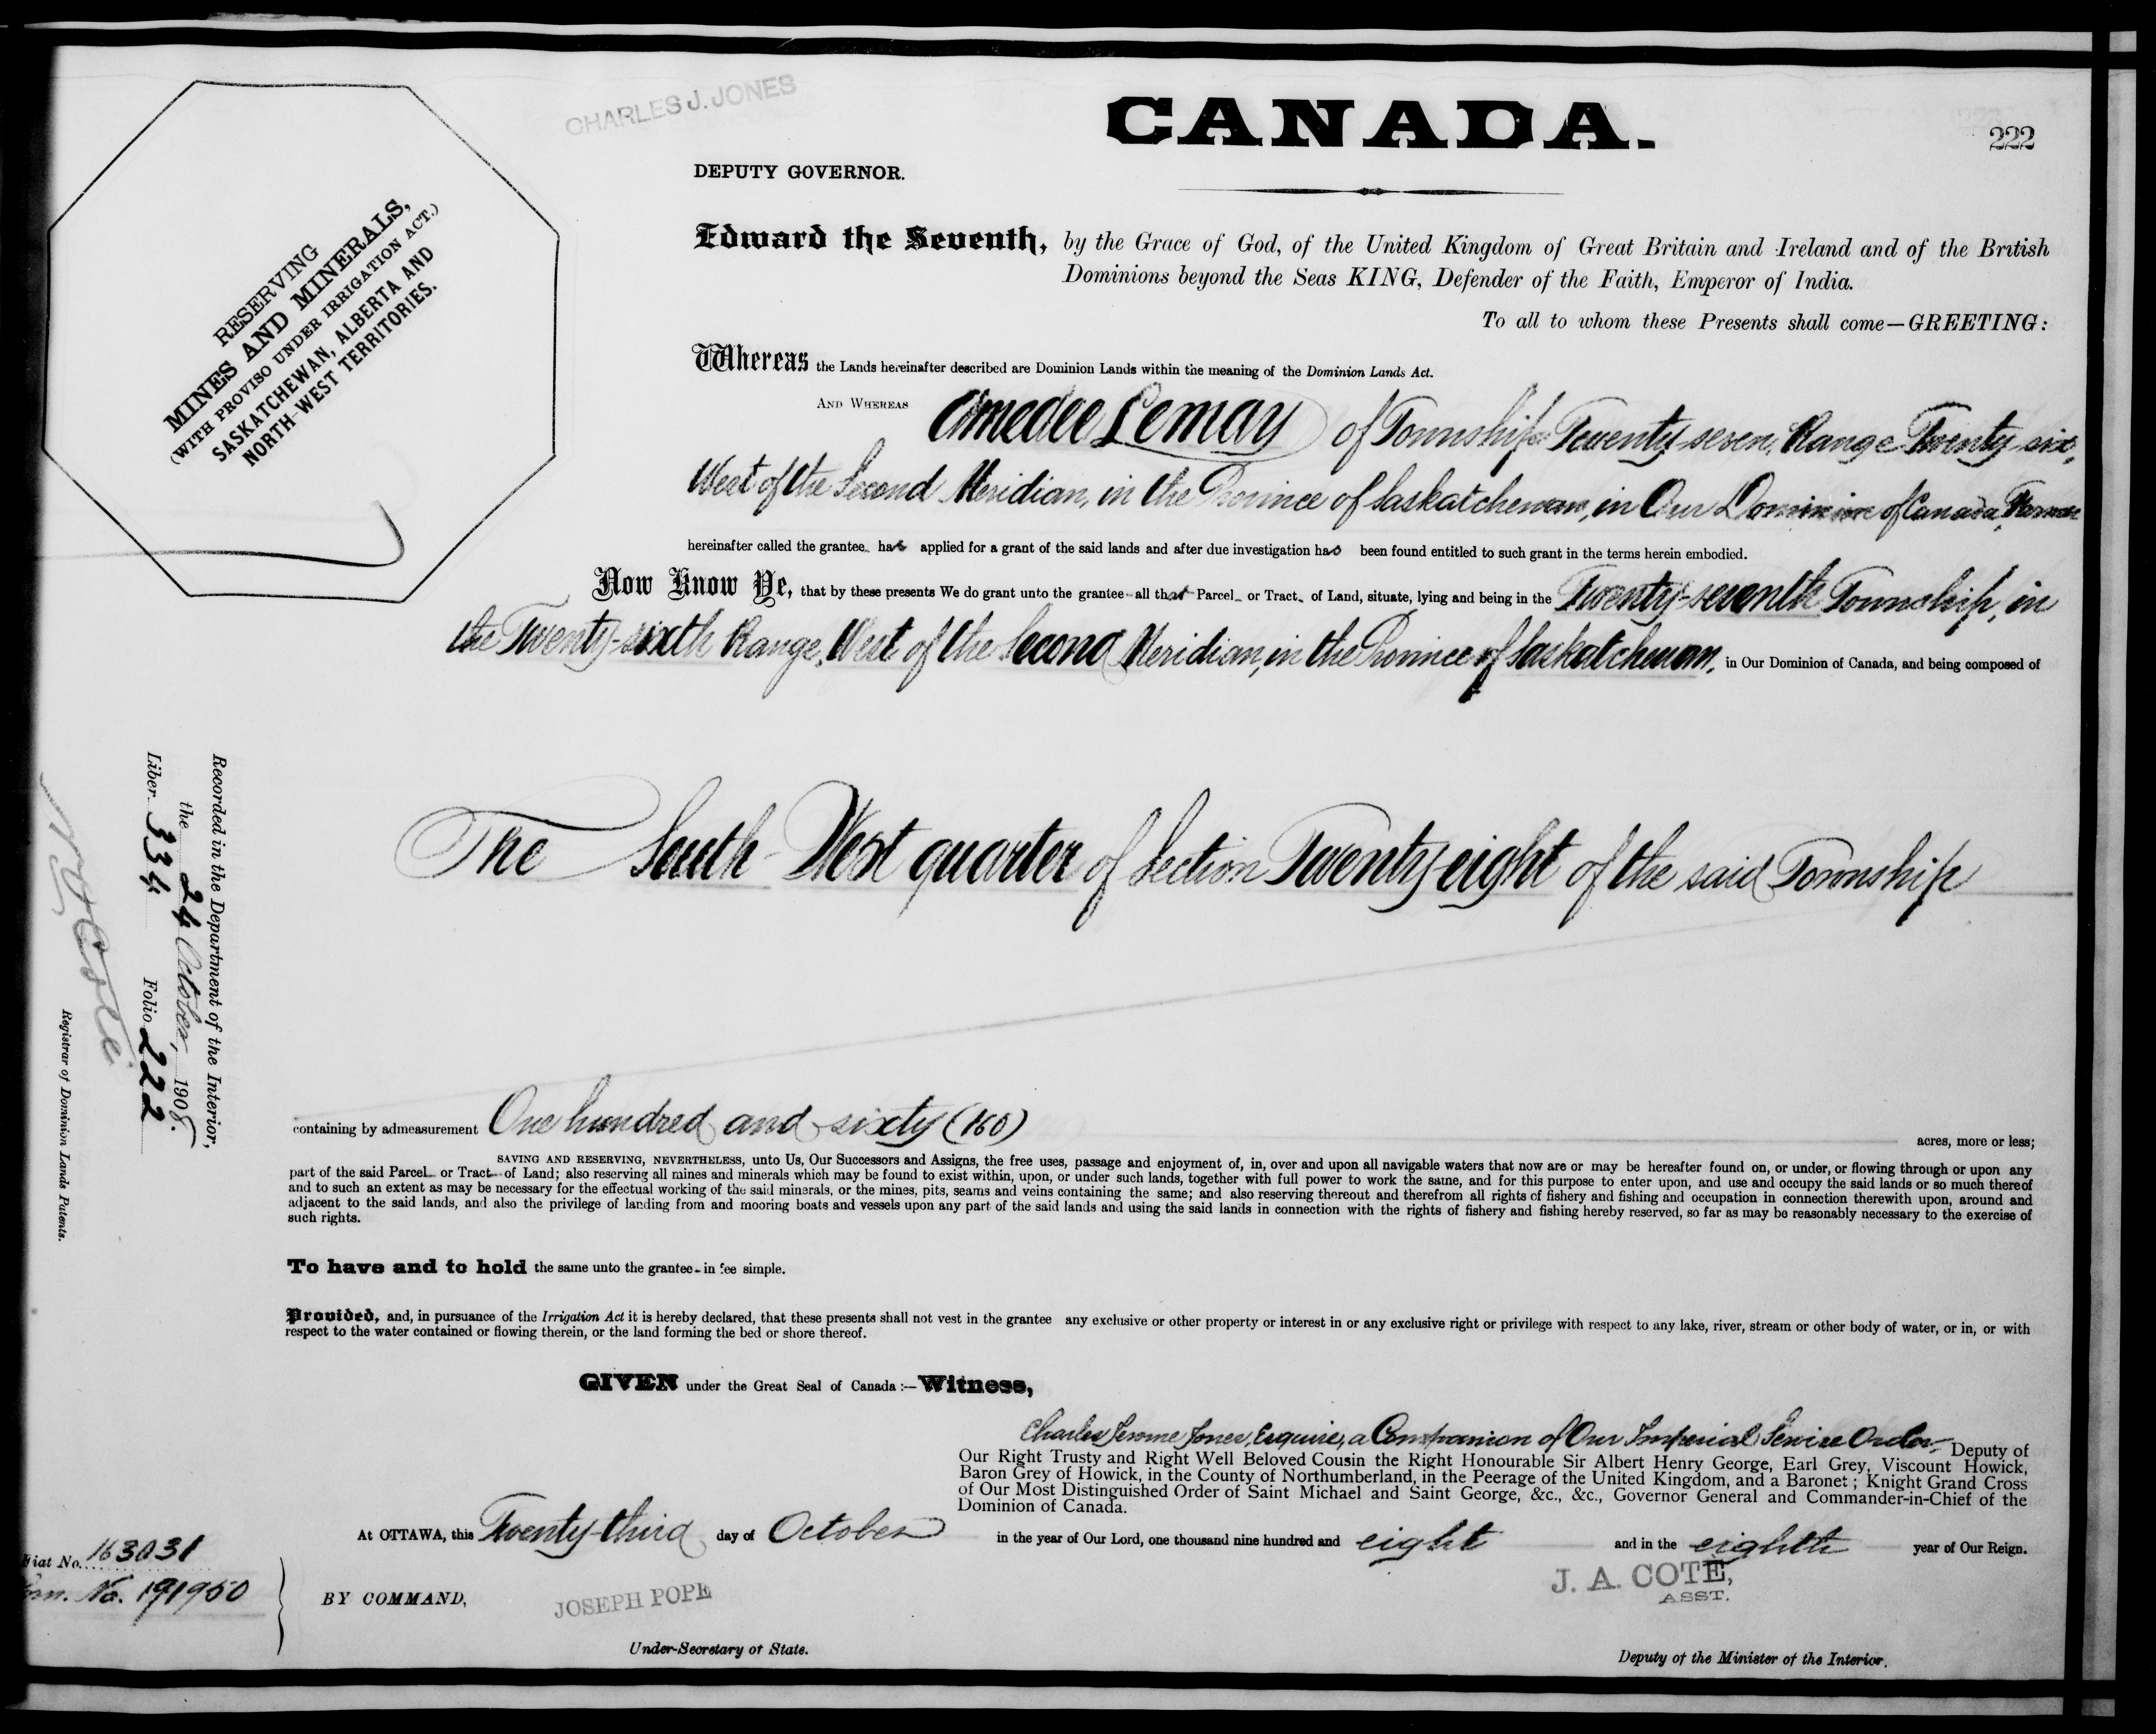 CHARLES J. JONES
CANADA.
222
DEPUTY GOVERNOR.
RESERVING
MINES AND MINERALS,
(WITH PROVISO UNDER IRRIGATION ACT.)
SASKATCHEWAN, ALBERTA AND
NORTH-WEST TERRITORIES.
Edward the Seventh, by the Grace of God, of the United Kingdom of Great Britain and Ireland and of the British
Dominions beyond the Seas KING, Defender of the Faith, Emperor of India.
To all to whom these Presents shall come—GREETING:
Whereas the Lands hereinafter described are Dominion Lands within the meaning of the Dominion Lands Act.
AND WHEREAS Amedee Lemay of Township Twenty seven, Range Twenty six,
West of the Second Meridian, in the Province of Saskatchewan, in Our Dominion of Canada, Farmer
hereinafter called the grantee has applied for a grant of the said lands and after due investigation has been found entitled to such grant in the terms herein embodied.
Now Know Ye, that by these presents We do grant unto the grantee all that Parcel or Tract of Land, situate, lying and being in the Twenty-seventh Township, in
the Twenty-sixth Range, West of the Second Meridian, in the Province of Saskatchewan, in Our Dominion of Canada, and being composed of
The South West quarter of Section Twenty eight of the said Township
containing by admeasurement One hundred and sixty (160) acres, more or less;
SAVING AND RESERVING, NEVERTHELESS, unto Us, Our Successors and Assigns, the free uses, passage and enjoyment of, in, over and upon all navigable waters that now are or may be hereafter found on, or under, or flowing through or upon any
part of the said Parcel or Tract of Land; also reserving all mines and minerals which may be found to exist within, upon, or under such lands, together with full power to work the same, and for this purpose to enter upon, and use and occupy the said lands or so much thereof
and to such an extent as may be necessary for the effectual working of the said minerals, or the mines, pits, seams and veins containing the same; and also reserving thereout and therefrom all rights of fishery and fishing and occupation in connection therewith upon, around and
adjacent to the said lands, and also the privilege of landing from and mooring boats and vessels upon any part of the said lands and using the said lands in connection with the rights of fishery and fishing hereby reserved, so far as may be reasonably necessary to the exercise of
such rights.
To have and to hold the same unto the grantee in fee simple.
Provided, and, in pursuance of the Irrigation Act it is hereby declared, that these presents shall not vest in the grantee any exclusive or other property or interest in or any exclusive right or privilege with respect to any lake, river, stream or other body of water, or in, or with
respect to the water contained or flowing therein, or the land forming the bed or shore thereof.
GIVEN under the Great Seal of Canada:—Witness,
Charles Jerome Jones, Esquire, a Companion of Our Imperial Service Order, Deputy of
Our Right Trusty and Right Well Beloved Cousin the Right Honourable Sir Albert Henry George, Earl Grey, Viscount Howick,
Baron Grey of Howick, in the County of Northumberland, in the Peerage of the United Kingdom, and a Baronet; Knight Grand Cross
of Our Most Distinguished Order of Saint Michael and Saint George, &c., &c., Governor General and Commander-in-Chief of the
Dominion of Canada.
At OTTAWA, this Twenty-third day of October in the year of Our Lord, one thousand nine hundred and eight and in the eighth year of Our Reign.
BY COMMAND,
JOSEPH POPE
Under-Secretary of State.
J. A. COTÉ,
ASST.
Deputy of the Minister of the Interior.
Recorded in the Department of the Interior,
the 24 October, 1908.
Liber 334 Folio 222
Registrar of Dominion Lands Patents.
Fiat No. 163031
No. 191950